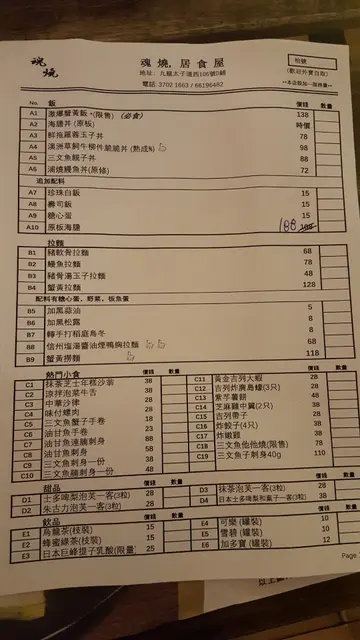 魂燒
魂燒.居食屋
地址: 九龍太子道西106號D鋪
電話: 3702 1663 / 66196482
枱號
(歡迎外賣自取)
**本店設加一服務費**
No. 飯 價錢 數量
A1 激爆蟹黃飯 *(限售) (必食) 138
A2 海膽丼 (原板) 時價
A3 鮮拖羅蓉玉子丼 78
A4 澳洲草飼牛柳件脆脆丼 (熟成N) 98
A5 三文魚親子丼 88
A6 浦燒鰻魚丼(原條) 72
追加配料
A7 珍珠白飯 15
A8 壽司飯 15
A9 糖心蛋 15
A10 原板海膽 188
拉麵 價錢 數量
B1 豬軟骨拉麵 68
B2 鰻魚拉麵 78
B3 豬骨湯玉子拉麵 48
B4 蟹黃拉麵 128
配料有糖心蛋，野菜，板魚蛋
B5 加黑蒜油 5
B6 加黑松露 8
B7 轉手打稻庭烏冬 8
B8 信州塩湯醬油煙鴨胸拉麵 68
B9 蟹黃撈麵 118
熱門小食 價錢 數量 價錢 數量
C1 抹茶芝士年糕沙翁 38
C2 涼拌泡菜牛舌 38
C3 中華沙律 28
C4 味付螺肉 28
C5 三文魚蟹子手卷 18
C6 油甘魚手卷 23
C7 油甘魚連腩刺身 88
C8 油甘魚刺身 58
C9 三文魚刺身一份 38
C10 三文魚腩刺身一份 48
C11 黃金吉列大蝦 28
C12 吉列炸廣島蠔(3只) 28
C13 紫芋薯餅 48
C14 芝麻雞中翼(2只) 38
C15 吉列帶子 28
C16 炸餃子(4只) 38
C17 炸嫩雞 38
C18 三文魚他他燒(限售) 78
C19 三文魚子刺身40g 110
甜品 價錢 數量 價錢 數量
D1 士多啤梨泡芙一客(3粒) 28
D2 朱古力泡芙一客(3粒) 28
D3 抹茶泡芙一客(3粒) 28
D4 日本士多啤梨和菓子一客(3粒) 38
飲品 價錢 數量
E1 烏龍茶(枝裝) 15
E2 蜂蜜綠茶(枝裝) 15
E3 日本巨峰提子乳酸(限量) 25
E4 可樂 (罐裝) 10
E5 雪碧 (罐裝) 10
E6 加多寶 (罐裝) 12
Page